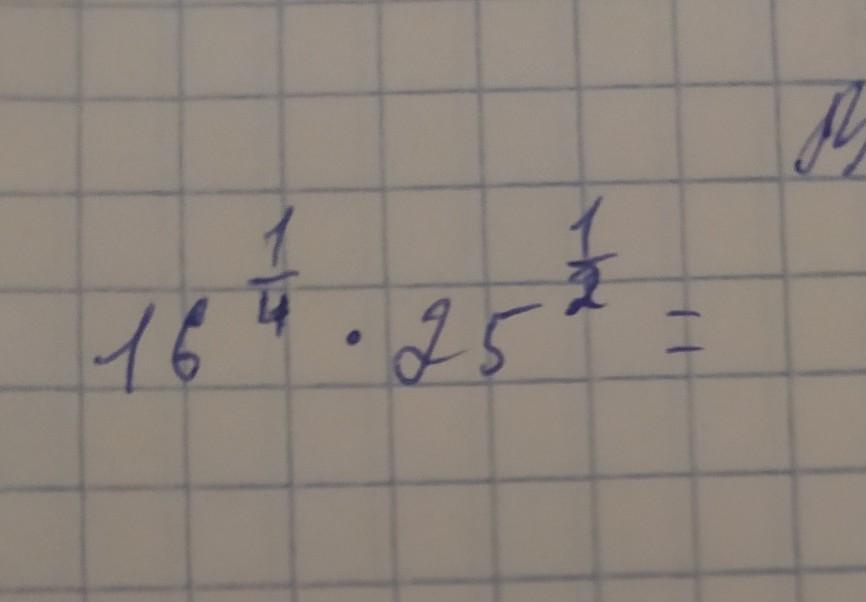 16^{\frac{1}{4}} · 25^{\frac{1}{2}} =